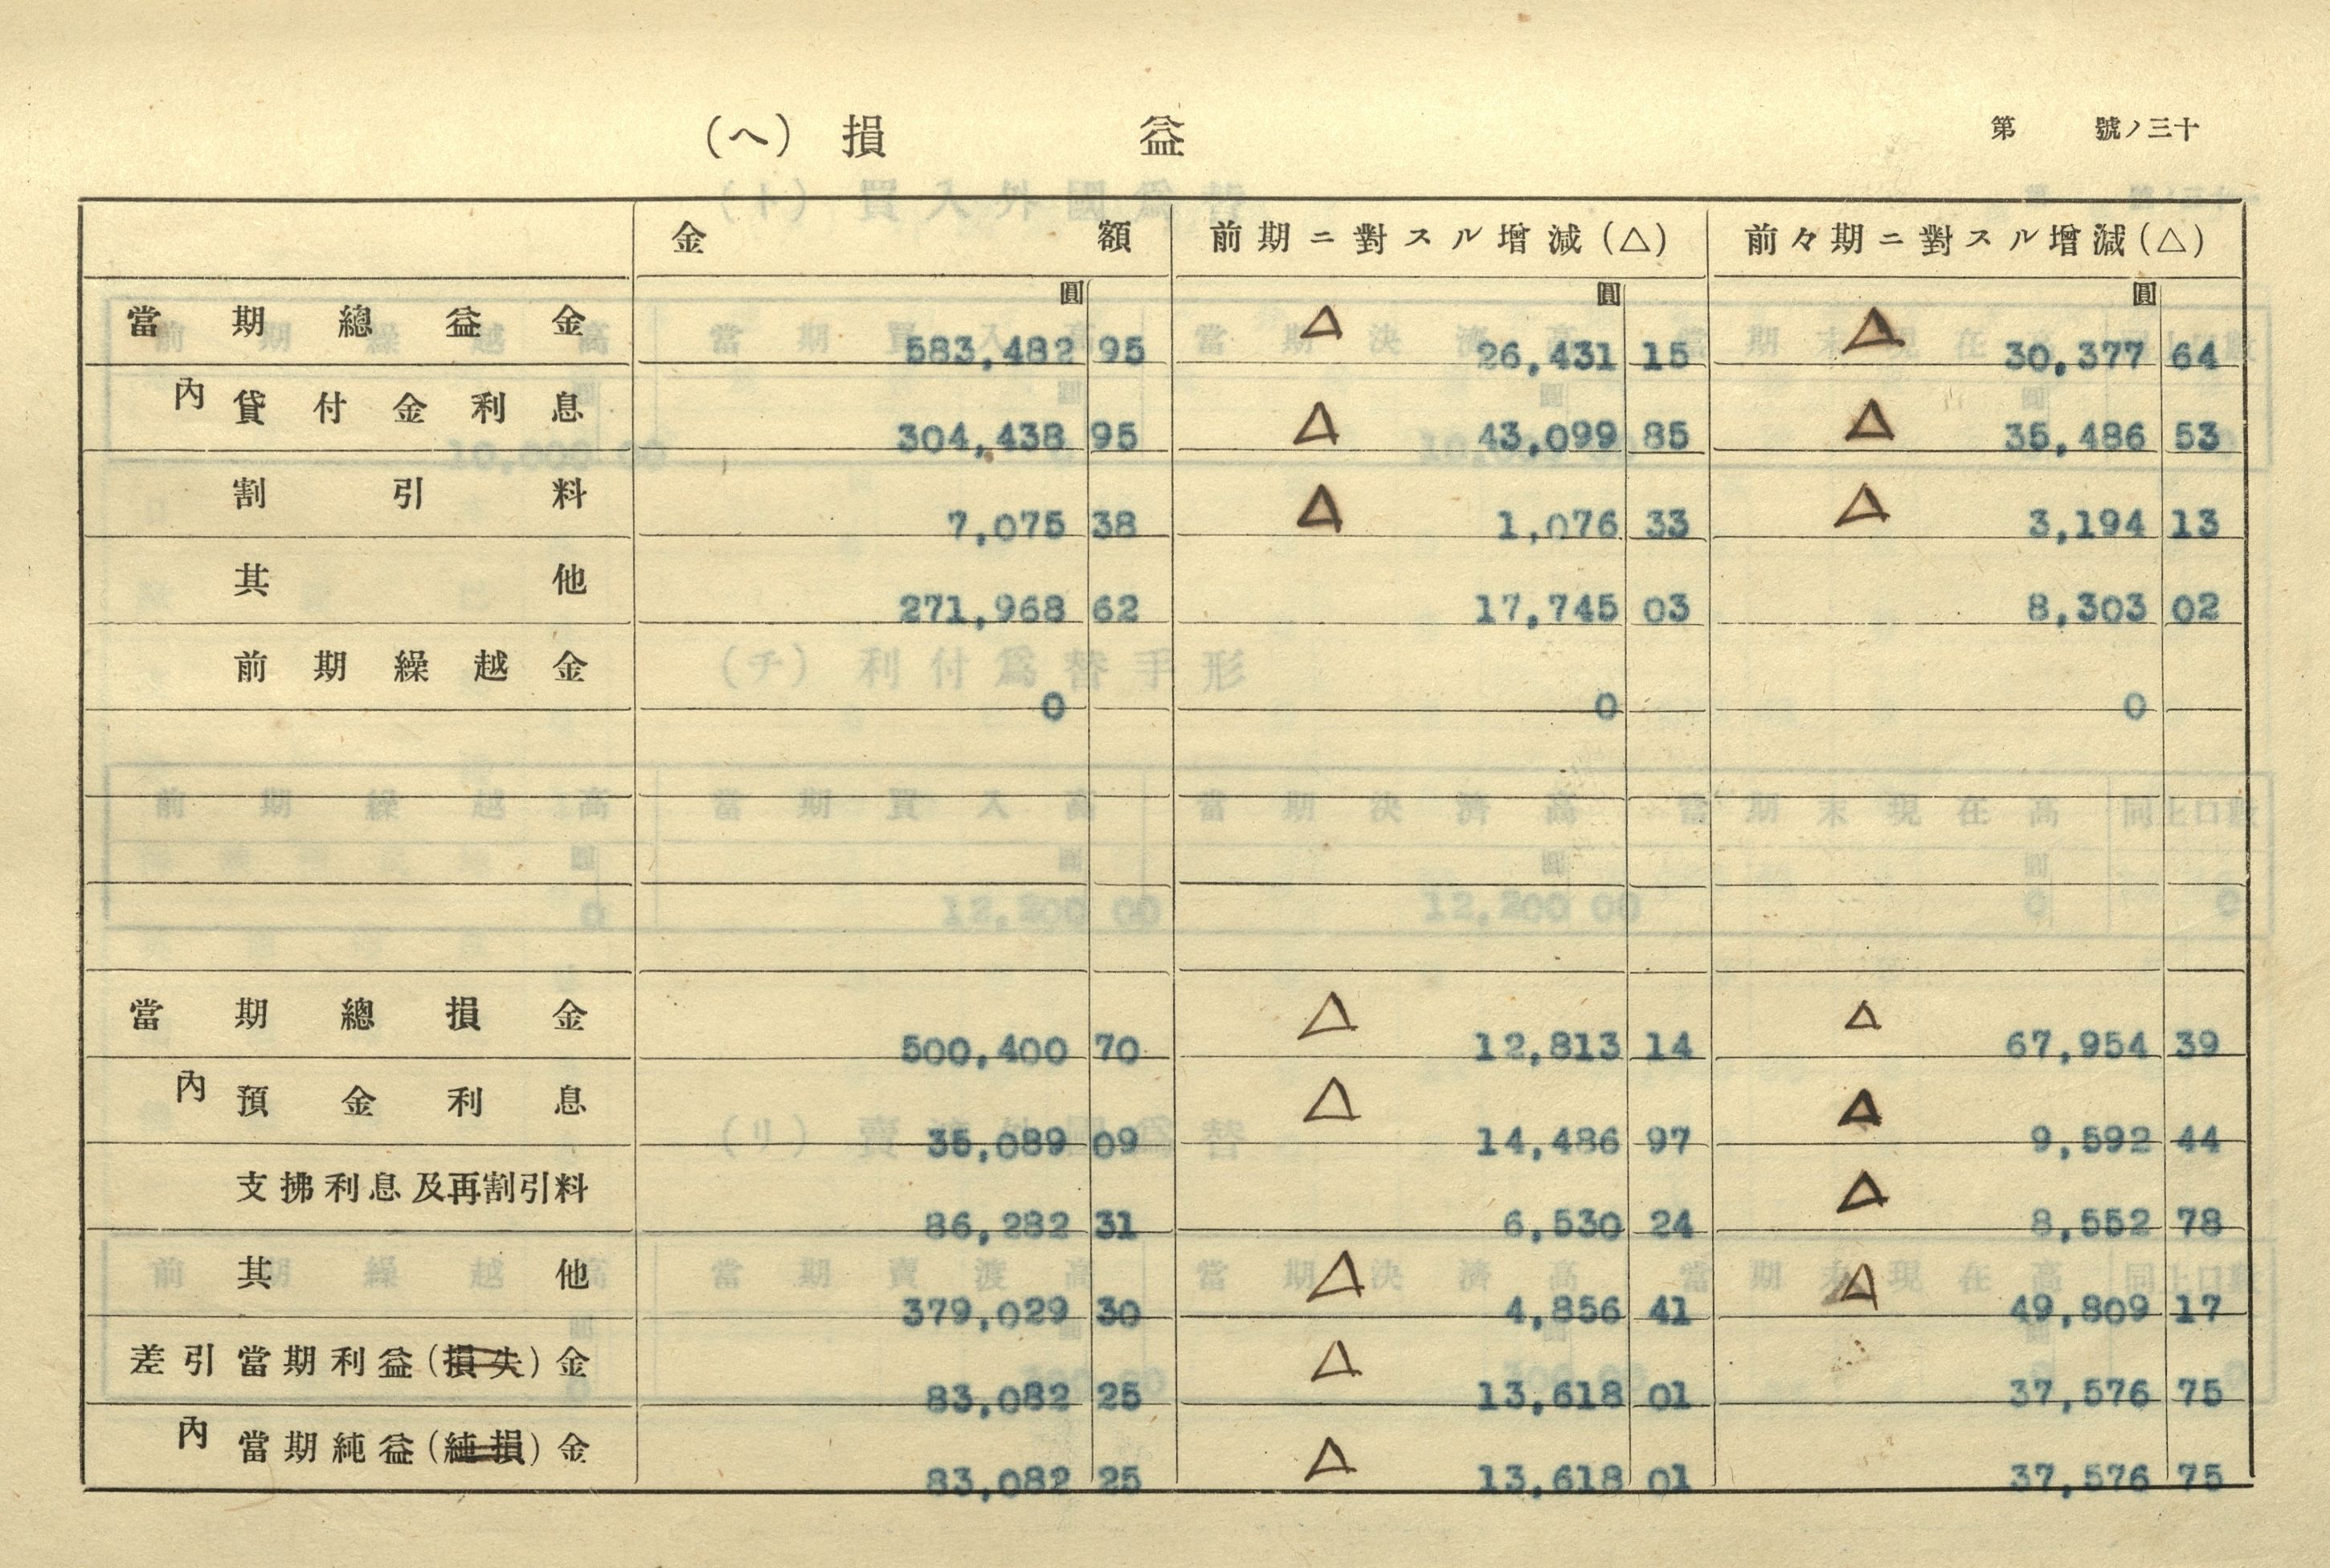 (ヘ) 損益
第 號ノ三十
金額 前期ニ對スル增減(△) 前々期ニ對スル增減(△)
圓 圓 圓
當期總益金 583,482 95 △ 26,431 15 △ 30,377 64
內 貸付金利息 304,438 95 △ 43,099 85 △ 35,486 53
割引料 7,075 38 △ 1,076 33 △ 3,194 13
其他 271,968 62 17,745 03 8,303 02
前期繰越金 0 0 0
當期總損金 500,400 70 △ 12,813 14 △ 67,954 39
內 預金利息 35,089 09 △ 14,486 97 △ 9,592 44
支拂利息及再割引料 86,282 31 6,530 24 △ 8,552 78
其他 379,029 30 △ 4,856 41 △ 49,809 17
差引當期利益(損失)金 83,082 25 △ 13,618 01 37,576 75
內 當期純益(純損)金 83,082 25 △ 13,618 01 37,576 75